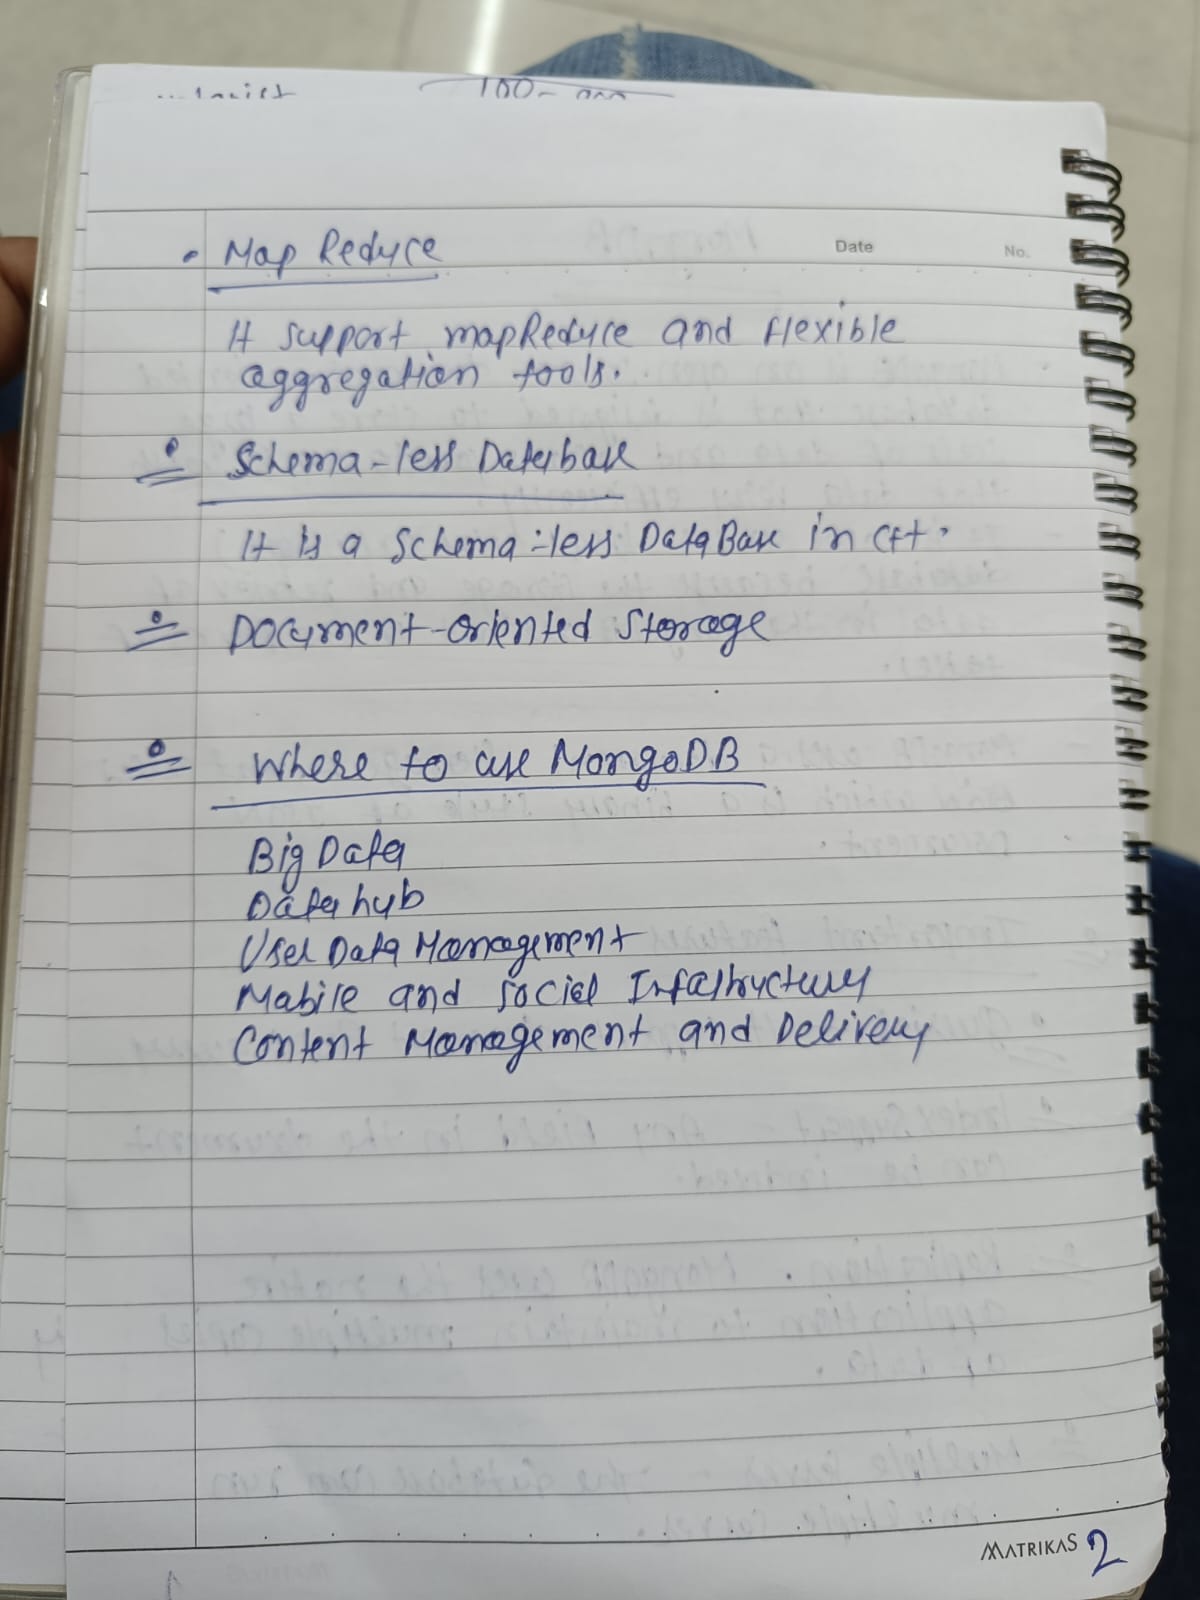 Date
No.
• Map Reduce
It support mapReduce and flexible
aggregation tools.
Schema-less Database
It is a Schema-less DataBase in C++.
Document-oriented Storage
Where to use MongoDB
Big Data
Data hub
User Data Management
Mabile and social Infastructure
Content Management and Delivery
MATRIKAS 2